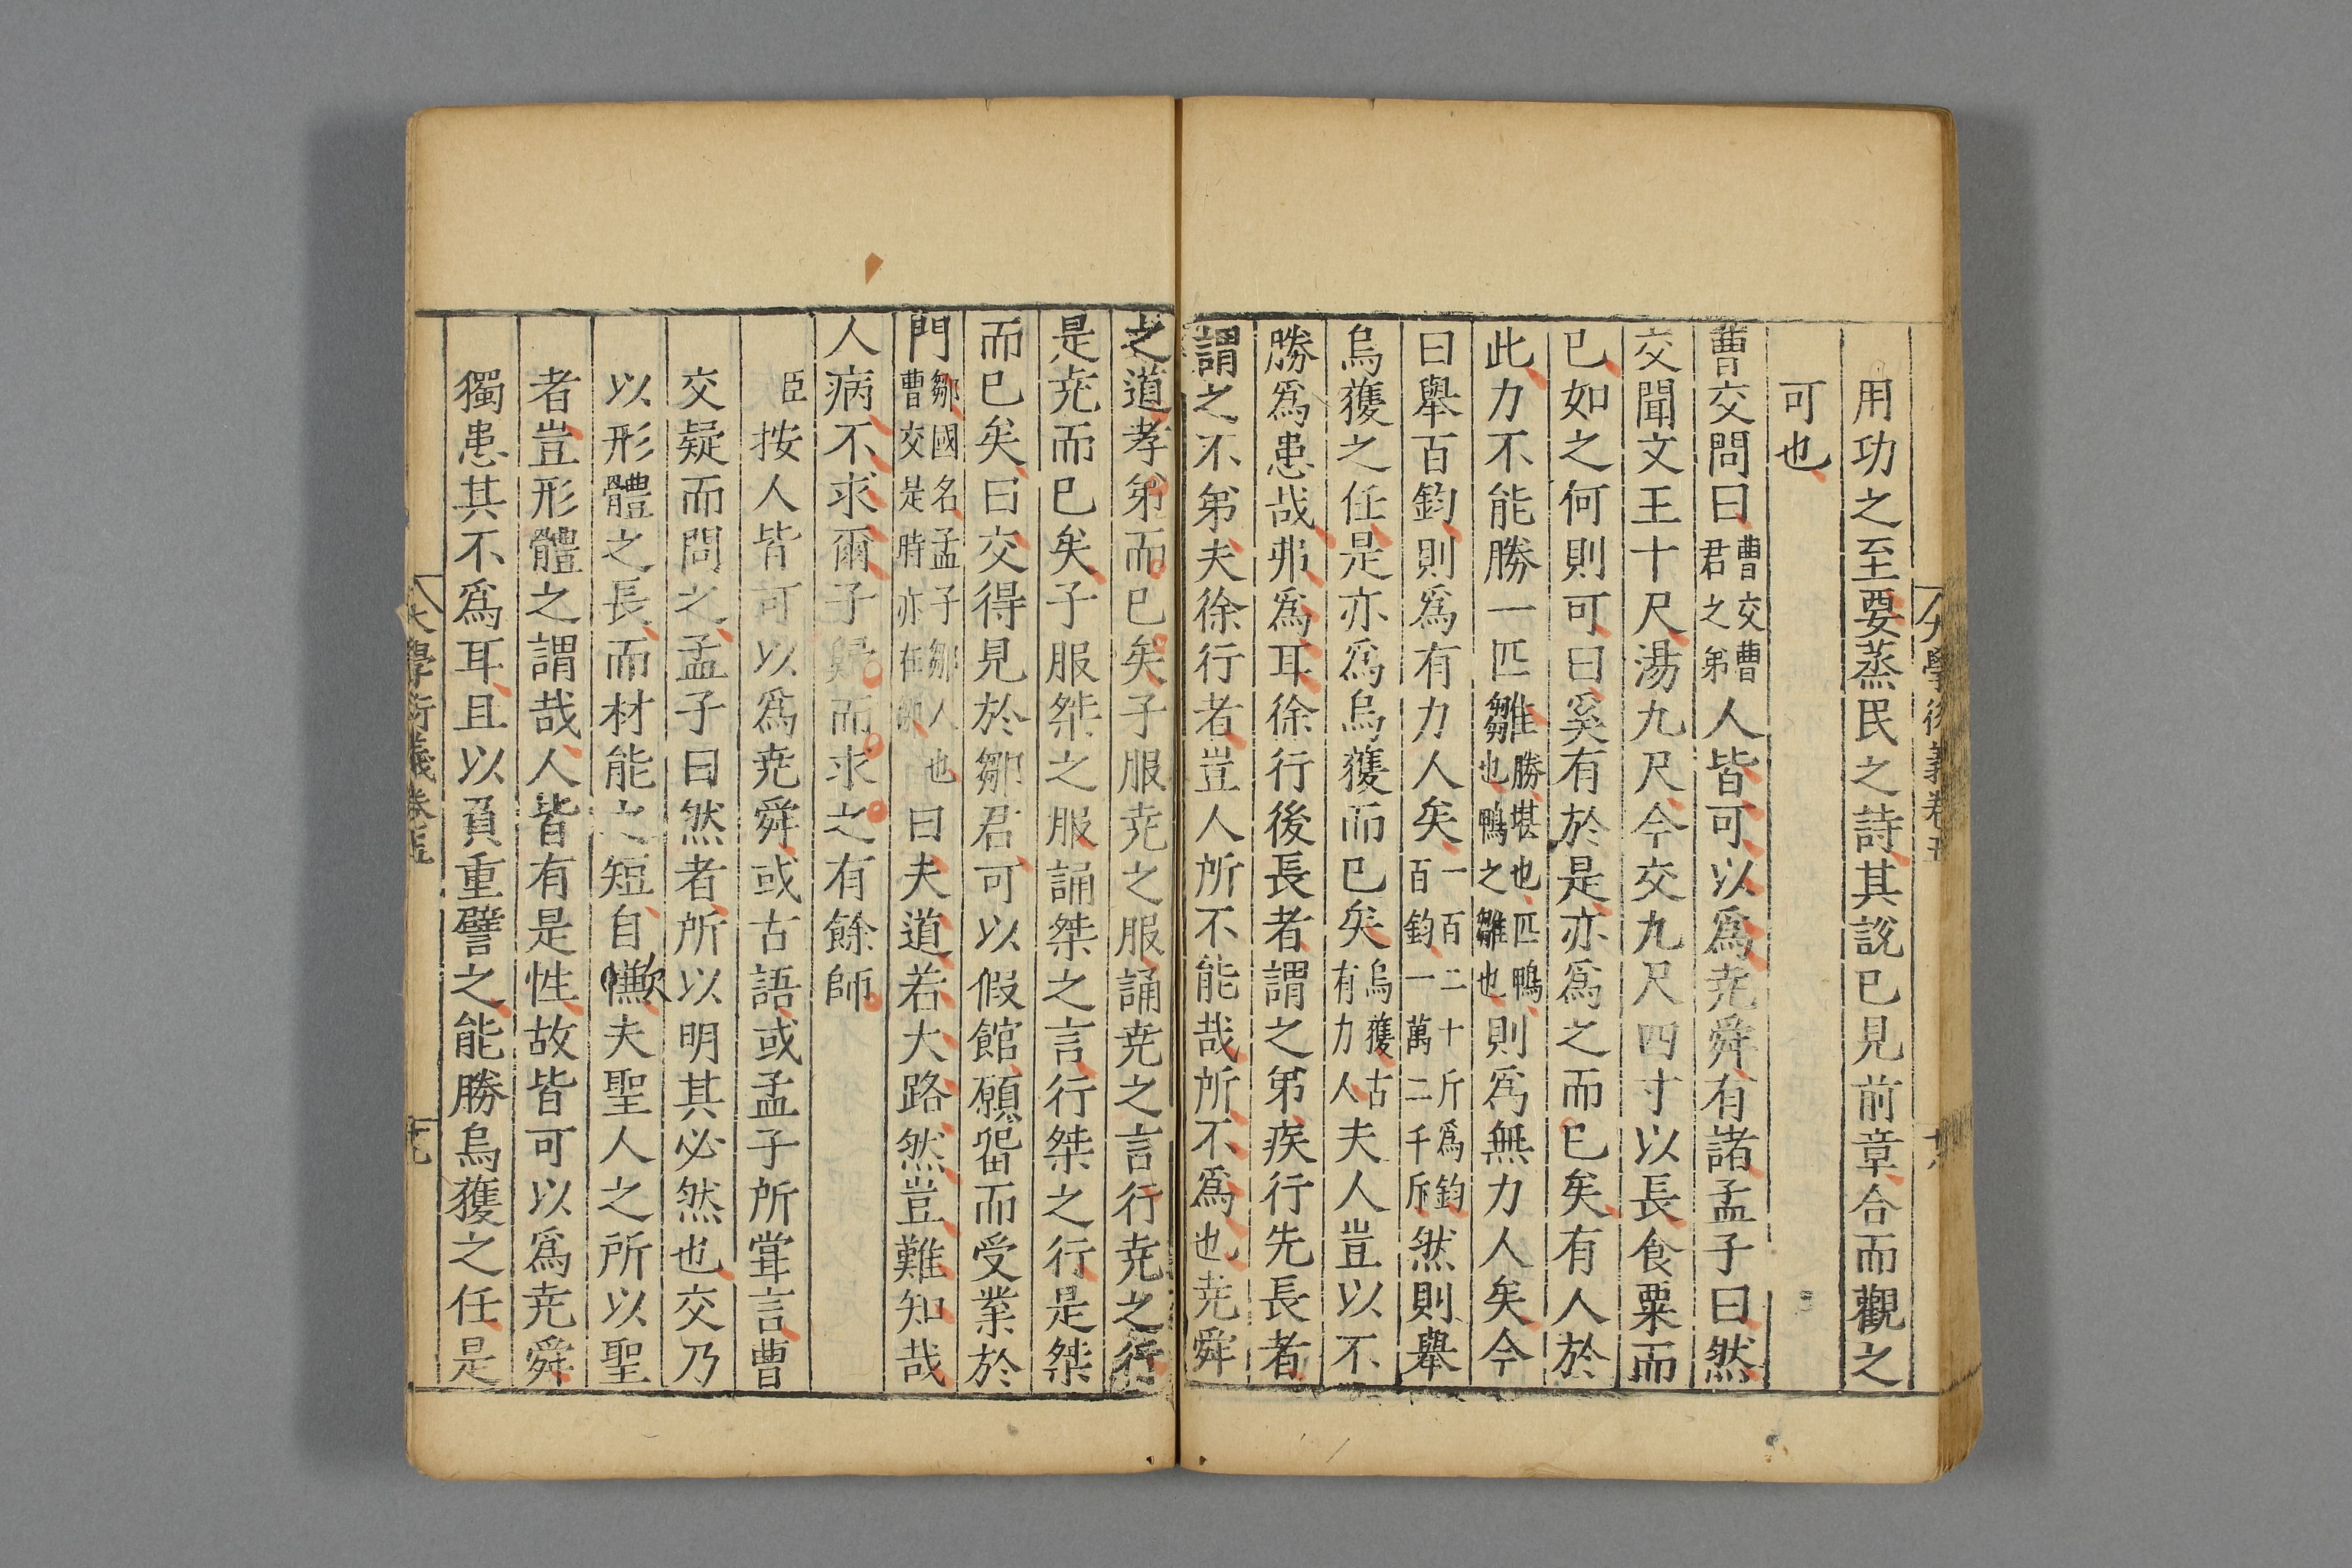 用功之至要蒸民之詩其說已見前章合而觀之
可也
曹交問曰曹交曹君之弟人皆可以爲尭舜有諸孟子曰然
交聞文王十尺湯九尺今交九尺四寸以長食粟而
已如之何則可曰奚有於是亦爲之而已矣有人於
此力不能勝一匹雛勝堪也匹鴨雛也鴨之雛也則爲無力人矣今
曰舉百鈞則爲有力人矣一百二十斤爲鈞百鈞一萬二千斤然則舉
烏獲之任是亦爲烏獲而已矣烏獲古有力人夫人豈以不
勝爲患哉弗爲耳徐行後長者謂之弟疾行先長者
謂之不弟夫徐行者豈人所不能哉所不爲也尭舜
之道孝弟而已矣子服尭之服誦尭之言行尭之行
是尭而已矣子服桀之服誦桀之言行桀之行是桀
而已矣曰交得見於鄒君可以假館願留而受業於
門鄒國名孟子鄒人也曹交是時亦在鄒曰夫道若大路然豈難知哉
人病不求爾子歸而求之有餘師
臣按人皆可以爲尭舜或古語或孟子所甞言曹
交疑而問之孟子曰然者所以明其必然也交乃
以形體之長而材能之短自慊夫聖人之所以聖
者豈形體之謂哉人皆有是性故皆可以爲尭舜
獨患其不爲耳且以負重譬之能勝烏獲之任是
大學衍義卷五